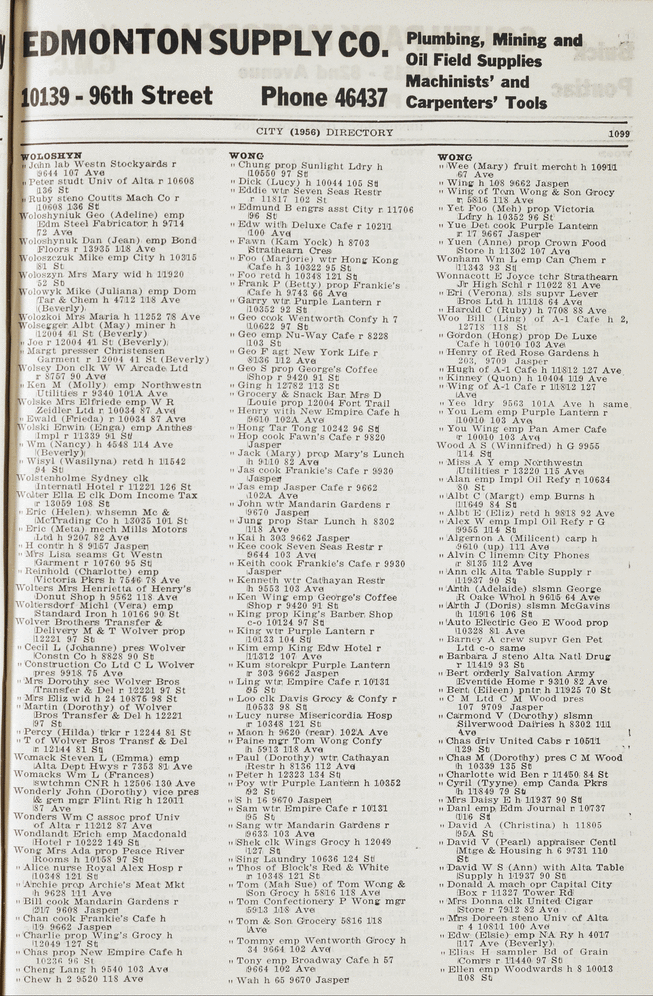 EDMONTON SUPPLY CO.
10139 - 96th Street Phone 46437
Plumbing, Mining and
Oil Field Supplies
Machinists' and
Carpenters' Tools
CITY (1956) DIRECTORY 1099
WOLOSHYN
" John lab Westn Stockyards r
9644 107 Ave
" Peter studt Univ of Alta r 10608
136 St
" Ruby steno Coutts Mach Co r
10608 136 St
Woloshyniuk Geo (Adeline) emp
Edm Steel Fabricator h 9714
72 Ave
Woloshynuk Dan (Jean) emp Bond
Floors r 13935 118 Ave
Woloszczuk Mike emp City h 10315
81 St
Woloszyn Mrs Mary wid h 11920
52 St
Wolowyk Mike (Juliana) emp Dom
Tar & Chem h 4712 118 Ave
(Beverly)
Wolozkoi Mrs Maria h 11252 78 Ave
Wolsegger Albt (May) miner h
12004 41 St (Beverly)
" Joe r 12004 41 St (Beverly)
" Margt presser Christensen
Garment r 12004 41 St (Beverly)
Wolsey Don clk W W Arcade Ltd
r 8757 90 Ave
" Ken M (Molly) emp Northwestn
Utilities r 9340 101A Ave
Wolske Mrs Elfriede emp W R
Zeidler Ltd r 10034 87 Ave
" Ewald (Frieda) r 10034 87 Ave
Wolski Erwin (Enga) emp Anthes
Impl r 11339 91 St
" Wm (Nancy) h 4548 114 Ave
(Beverly)
" Wisyl (Wasilyna) retd h 11542
94 St
Wolstenholme Sydney clk
Internatl Hotel r 11221 126 St
Wolter Ella E clk Dom Income Tax
r 13059 108 St
" Eric (Helen) whsemn Mc &
McTrading Co h 13035 101 St
" Eric (Meta) mech Mills Motors
Ltd h 9207 82 Ave
" H contr h 8 9157 Jasper
" Mrs Lisa seams Gt Westn
Garment r 10760 95 St
" Reinhold (Charlotte) emp
Victoria Pkrs h 7546 78 Ave
Wolters Mrs Henrietta of Henry's
Donut Shop h 9562 118 Ave
Woltersdorf Michl (Vera) emp
Standard Iron h 10166 90 St
Wolver Brothers Transfer &
Delivery M & T Wolver prop
12221 97 St
" Cecil L (Johanne) pres Wolver
Constn Co h 8828 90 St
" Construction Co Ltd C L Wolver
pres 9918 75 Ave
" Mrs Dorothy sec Wolver Bros
Transfer & Del r 12221 97 St
" Mrs Eliz wid h 24 10876 98 St
" Martin (Dorothy) of Wolver
Bros Transfer & Del h 12221
97 St
" Percy (Hilda) trkr r 12244 81 St
" T of Wolver Bros Transf & Del
r 12144 81 St
Womack Steven L (Emma) emp
Alta Dept Hwys r 7353 81 Ave
Womacks Wm L (Frances)
swtchmn CNR h 12506 130 Ave
Wonderly John (Dorothy) vice pres
& gen mgr Flint Rig h 12011
87 Ave
Wonders Wm C assoc prof Univ
of Alta r 11212 87 Ave
Wondlandt Erich emp Macdonald
Hotel r 10222 149 St
Wong Mrs Ada prop Peace River
Rooms h 10158 97 St
" Alice nurse Royal Alex Hosp r
10348 121 St
" Archie prop Archie's Meat Mkt
h 9628 111 Ave
" Bill cook Mandarin Gardens r
217 9608 Jasper
" Chan cook Frankie's Cafe h
19 9662 Jasper
" Charlie prop Wing's Grocy h
12049 127 St
" Chas prop New Empire Cafe h
10236 96 St
" Cheng Lang h 9540 103 Ave
" Chew h 2 9520 118 Ave
WONG
" Chung prop Sunlight Ldry h
10550 97 St
" Dick (Lucy) h 10044 105 St
" Eddie wtr Seven Seas Restr
r 11817 102 St
" Edmund B engrs asst City r 11706
96 St
" Edw with Deluxe Cafe r 10211
100 Ave
" Fawn (Kam Yock) h 8703
Strathearn Cres
" Foo (Marjorie) wtr Hong Kong
Cafe h 3 10322 95 St
" Foo retd h 10348 121 St
" Frank P (Betty) prop Frankie's
Cafe h 9743 66 Ave
" Garry wtr Purple Lantern r
10352 92 St
" Geo cook Wentworth Confy h 7
10622 97 St
" Geo emp Nu-Way Cafe r 8228
103 St
" Geo F agt New York Life r
8136 112 Ave
" Geo S prop George's Coffee
Shop r 9420 91 St
" Ging h 12782 113 St
" Grocery & Snack Bar Mrs D
Louie prop 12004 Fort Trail
" Henry with New Empire Cafe h
9610 102A Ave
" Hong Tar Tong 10242 96 St
" Hop cook Fawn's Cafe r 9820
Jasper
" Jack (Mary) prop Mary's Lunch
h 9110 82 Ave
" Jas cook Frankie's Cafe r 9930
Jasper
" Jas emp Jasper Cafe r 9662
102A Ave
" John wtr Mandarin Gardens r
9670 Jasper
" Jung prop Star Lunch h 8302
118 Ave
" Kai h 303 9662 Jasper
" Kee cook Seven Seas Restr r
9644 103 Ave
" Keith cook Frankie's Cafe r 9930
Jasper
" Kenneth wtr Cathayan Restr
h 9553 103 Ave
" Ken Wing emp George's Coffee
Shop r 9420 91 St
" King prop King's Barber Shop
c-o 10124 97 St
" King wtr Purple Lantern r
10133 104 St
" Kim emp King Edw Hotel r
11312 107 Ave
" Kum storekpr Purple Lantern
r 303 9662 Jasper
" Ling wtr Empire Cafe r 10131
95 St
" Loo clk Davis Grocy & Confy r
10533 98 St
" Lucy nurse Misericordia Hosp
r 10348 121 St
" Maon h 9620 (rear) 102A Ave
" Paine mgr Tom Wong Confy
h 5913 118 Ave
" Paul (Dorothy) wtr Cathayan
Restr h 8136 112 Ave
" Peter h 12323 134 St
" Poy wtr Purple Lantern h 10352
92 St
" S h 16 9670 Jasper
" Sam wtr Empire Cafe r 10131
95 St
" Sang wtr Mandarin Gardens r
9633 103 Ave
" Shek clk Wings Grocy h 12049
127 St
" Sing Laundry 10636 124 St
" Thos of Block's Red & White
r 10348 121 St
" Tom (Mah Sue) of Tom Wong &
Son Grocy h 5816 118 Ave
" Tom Confectionery P Wong mgr
5913 118 Ave
" Tom & Son Grocery 5816 118
Ave
" Tommy emp Wentworth Grocy h
34 9664 102 Ave
" Tony emp Broadway Cafe h 57
9664 102 Ave
" Wah h 65 9670 Jasper
WONG
" Wee (Mary) fruit mercht h 10911
67 Ave
" Wing h 108 9662 Jasper
" Wing of Tom Wong & Son Grocy
r 5816 118 Ave
" Yet Foo (Meh) prop Victoria
Ldry h 10352 96 St
" Yue Det cook Purple Lantern
r 17 9667 Jasper
" Yuen (Anne) prop Crown Food
Store h 11302 107 Ave
Wonham Wm L emp Can Chem r
11343 93 St
Wonnacott E Joyce tchr Strathearn
Jr High Schl r 11022 81 Ave
" Eri (Verona) sls supvr Lever
Bros Ltd h 11118 64 Ave
" Harold C (Ruby) h 7708 88 Ave
Woo Bill (Ling) of A-1 Cafe h 2,
12718 118 St
" Gordon (Hong) prop De Luxe
Cafe h 10010 103 Ave
" Henry of Red Rose Gardens h
203, 9709 Jasper
" Hugh of A-1 Cafe h 11812 127 Ave
" Kinney (Quon) h 10404 119 Ave
" Wing of A-1 Cafe r 11812 127
Ave
" Yee ldry 9563 101A Ave h same
" You Lem emp Purple Lantern r
10010 103 Ave
" You Wing emp Pan Amer Cafe
r 10010 103 Ave
Wood A S (Winnifred) h G 9955
114 St
" Miss A Y emp Northwestn
Utilities r 13220 115 Ave
" Alan emp Impl Oil Refy r 10634
80 St
" Albt C (Margt) emp Burns h
11649 84 St
" Albt E (Eliz) retd h 9818 92 Ave
" Alex W emp Impl Oil Refy r G
9955 114 St
" Algernon A (Milicent) carp h
9610 (up) 111 Ave
" Alvin C linemn City Phones
r 8135 112 Ave
" Ann clk Alta Table Supply r
11937 90 St
" Arth (Adelaide) slsmn George
R Oake Whol h 9615 64 Ave
" Arth J (Doris) slsmn McGavins
h 11916 106 St
" Auto Electric Geo E Wood prop
10328 81 Ave
" Barney A crew supvr Gen Pet
Ltd c-o same
" Barbara J steno Alta Natl Drug
r 11419 93 St
" Bert orderly Salvation Army
Eventide Home r 9310 82 Ave
" Bert (Eileen) pntr h 11925 70 St
" C M Ltd C M Wood pres
107 9709 Jasper
" Carmond V (Dorothy) slsmn
Silverwood Dairies h 8302 111
Ave
" Chas driver United Cabs r 10511
129 St
" Chas M (Dorothy) pres C M Wood
h 10339 135 St
" Charlotte wid Ben r 11450 84 St
" Cyril (Tyyne) emp Canda Pkrs
h 11849 79 St
" Mrs Daisy E h 11937 90 St
" Danl emp Edm Journal r 10737
116 St
" David A (Christina) h 11805
95A St
" David V (Pearl) appraiser Centl
Mtge & Housing h 6 9731 110
St
" David W S (Ann) with Alta Table
Supply h 11937 90 St
" Donald A mach opr Capital City
Box r 11327 Tower Rd
" Mrs Donna clk United Cigar
Store r 7912 82 Ave
" Mrs Doreen steno Univ of Alta
r 4 10811 100 Ave
" Edw (Elsie) emp NA Ry h 4017
117 Ave (Beverly)
" Elias H sampler Bd of Grain
Comrs r 11440 97 St
" Ellen emp Woodwards h 8 10013
108 St